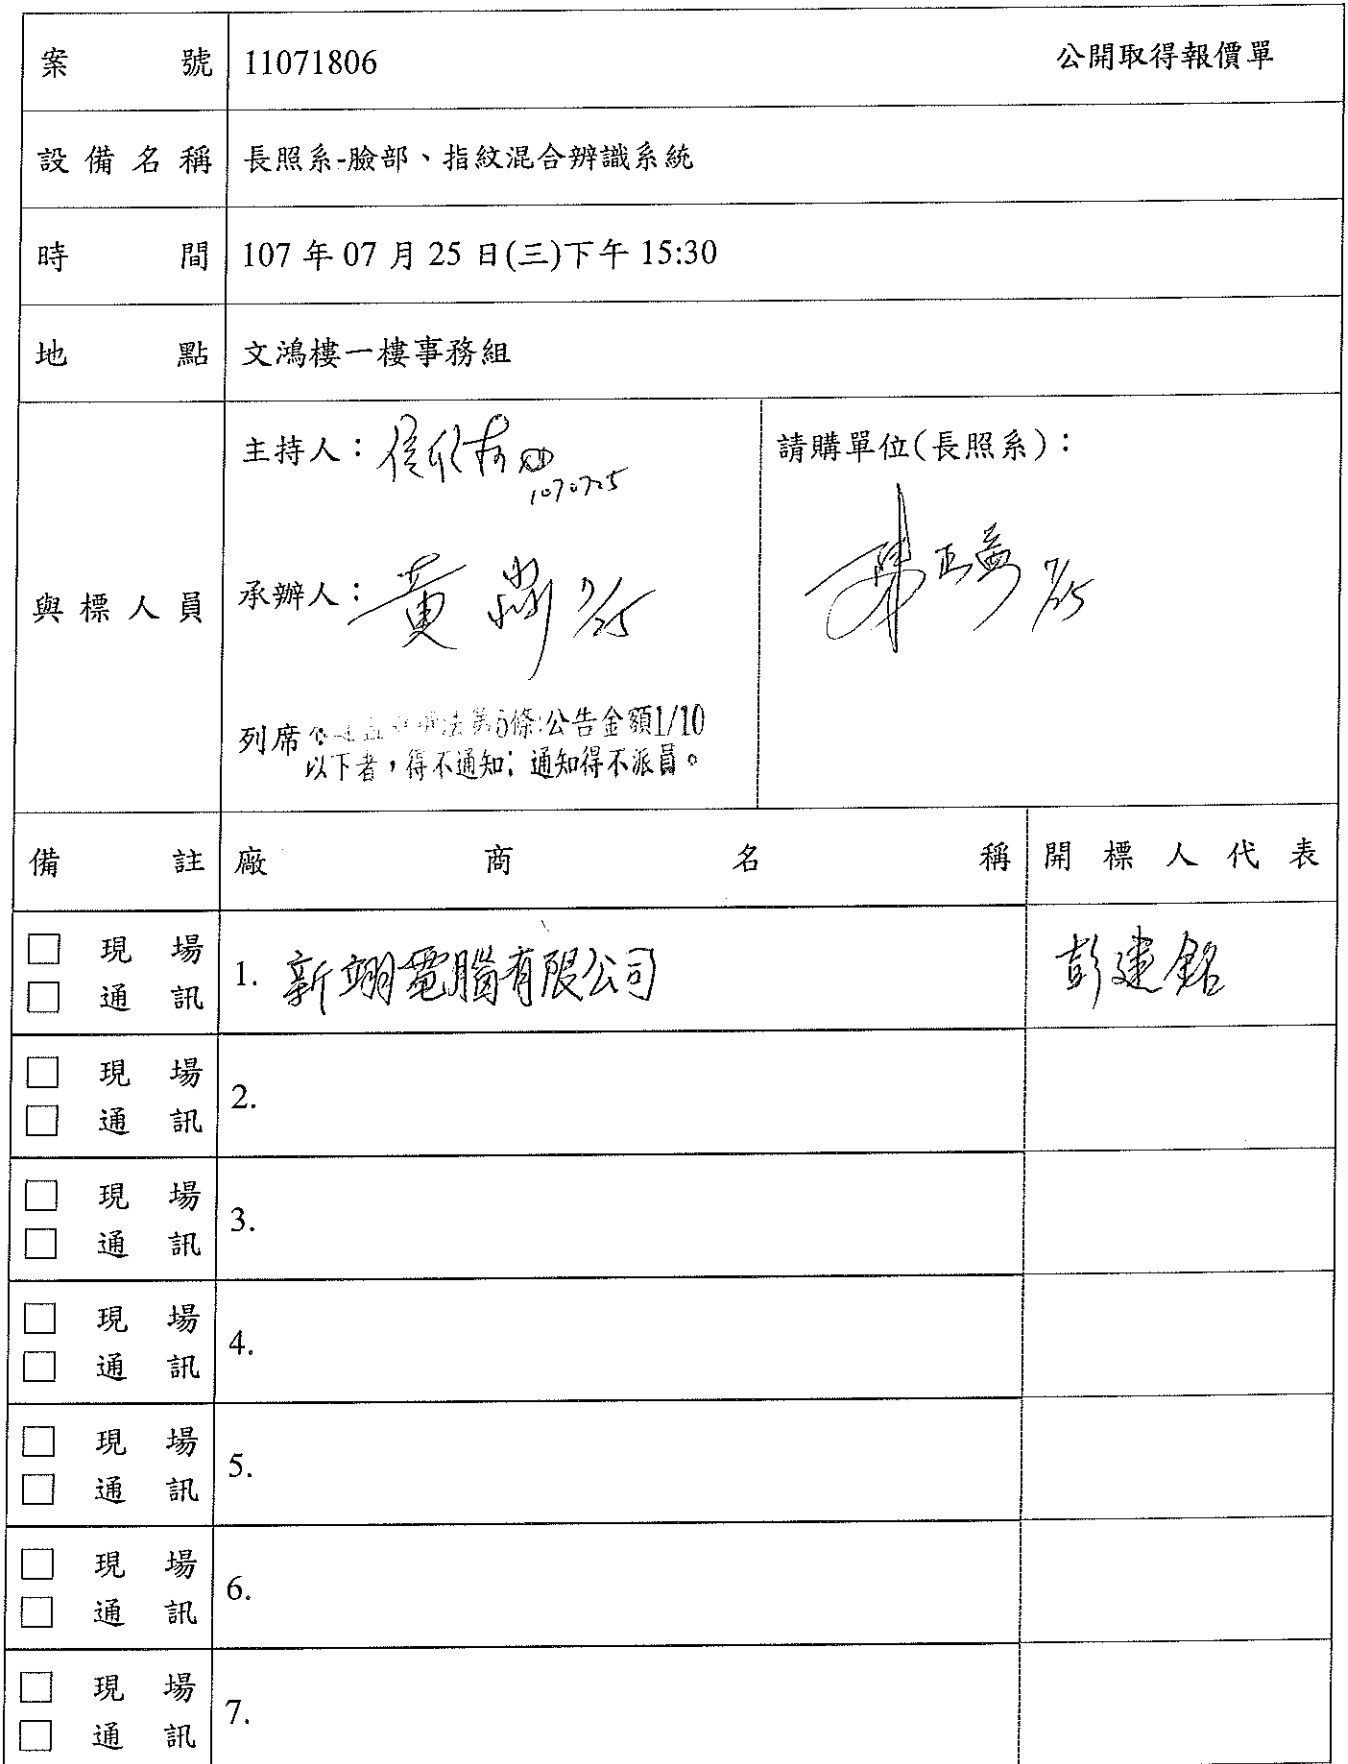 案號 11071806 公開取得報價單
設備名稱 長照系-臉部、指紋混合辨識系統
時間 107 年 07 月 25 日(三)下午 15:30
地點 文鴻樓一樓事務組
與標人員
主持人：
1070725
承辦人：黃 7/25
列席 法第5條:公告金額1/10
以下者，得不通知;通知得不派員。
請購單位(長照系)：
陳正益 7/25
備註 廠商名稱 開標人代表
□ 現場
□ 通訊
1. 新翊電腦有限公司 彭建銘
□ 現場
□ 通訊
2.
□ 現場
□ 通訊
3.
□ 現場
□ 通訊
4.
□ 現場
□ 通訊
5.
□ 現場
□ 通訊
6.
□ 現場
□ 通訊
7.